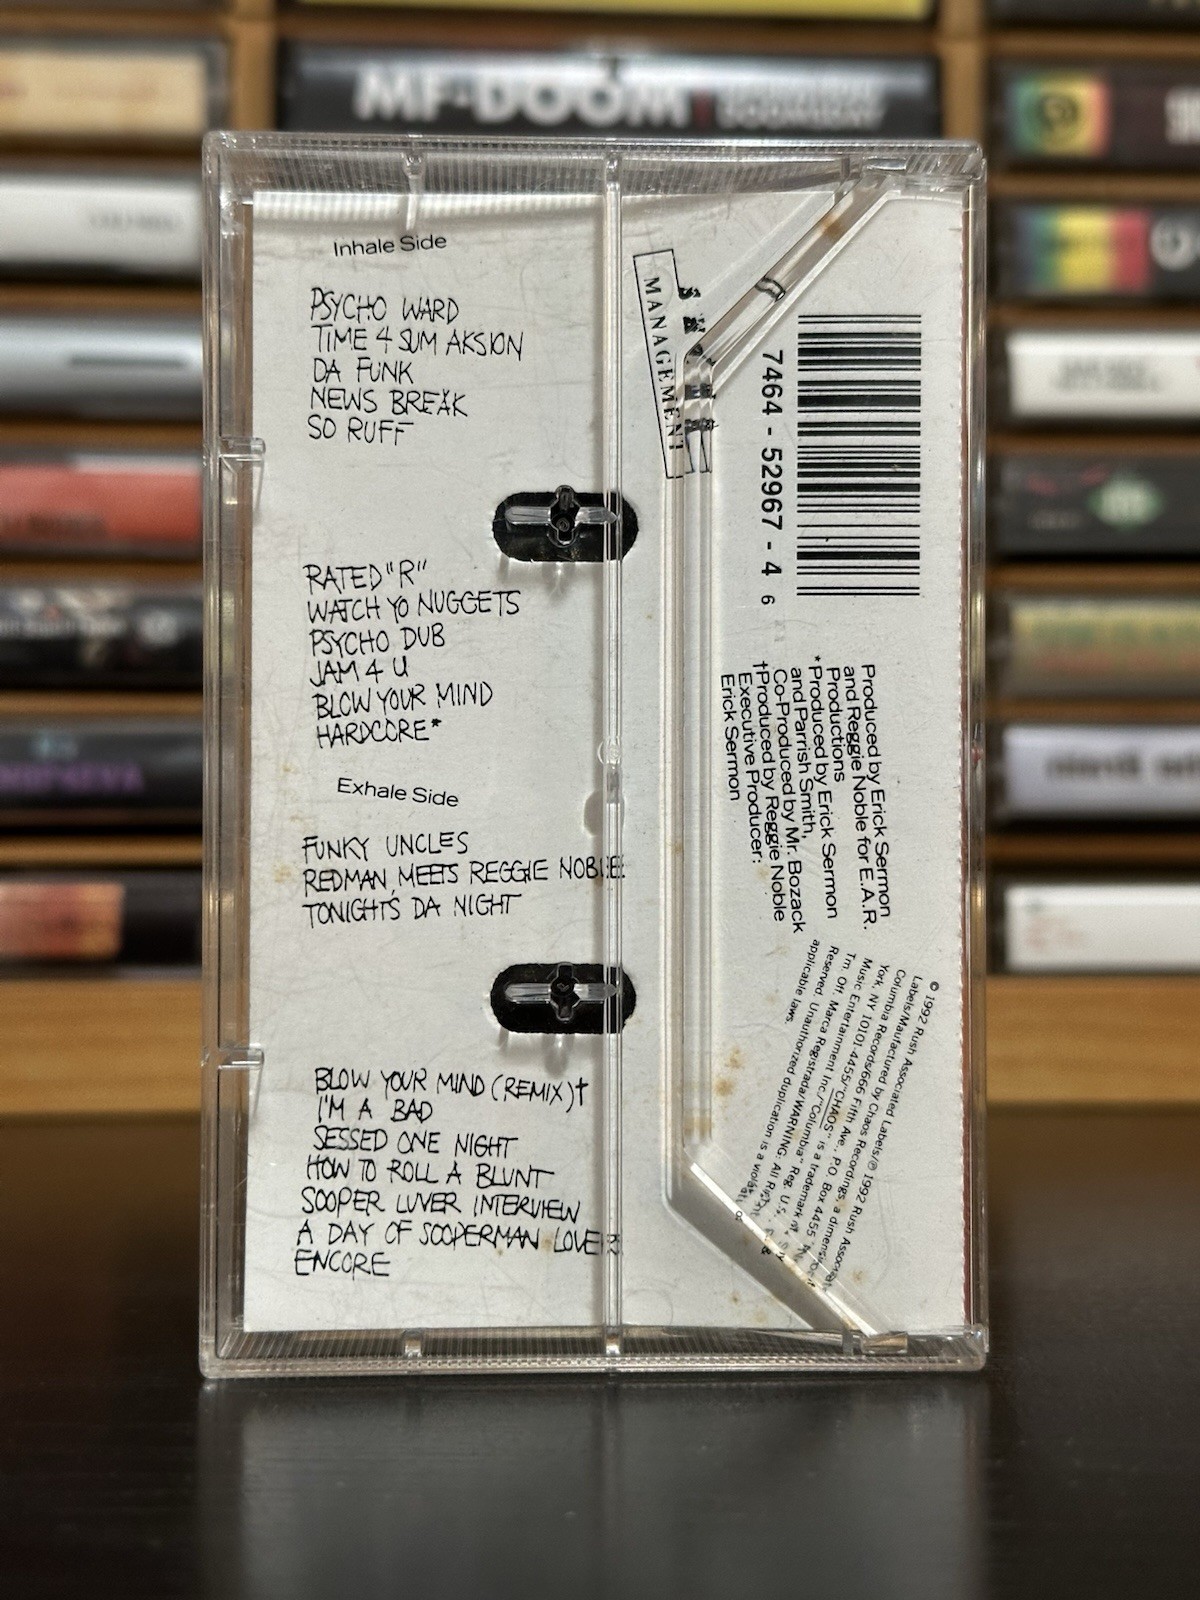 MF·DOOM
Inhale Side
PSYCHO WARD
TIME 4 SUM AKSION
DA FUNK
NEWS BREAK
SO RUFF
RATED "R"
WATCH YO NUGGETS
PSYCHO DUB
JAM 4 U
BLOW YOUR MIND
HARDCORE*
Exhale Side
FUNKY UNCLES
REDMAN MEETS REGGIE NOBLE
TONIGHT'S DA NIGHT
BLOW YOUR MIND (REMIX)†
I'M A BAD
SESSED ONE NIGHT
HOW TO ROLL A BLUNT
SOOPER LUVER INTERVIEW
A DAY OF SOOPERMAN LOVER
ENCORE
MANAGEMENT
7464 - 52967 - 4 6
Produced by Erick Sermon
and Reggie Noble for E.A.R.
Productions
*Produced by Erick Sermon
and Parrish Smith,
Co-Produced by Mr. Bozack
†Produced by Reggie Noble
Executive Producer:
Erick Sermon
© 1992 Rush Associated Labels/℗ 1992 Rush Associated
Labels/Maufactured by Chaos Recordings, a dimension
Columbia Records/666 Fifth Ave., P.O. Box 4455
York, NY 10101-4455/"CHAOS" is a trademark of
Music Entertainment Inc./"Columbia" Reg. U.S.
Tm. Off. Marca Registrada/WARNING: All
Reserved. Unauthorized duplication is a
applicable laws.